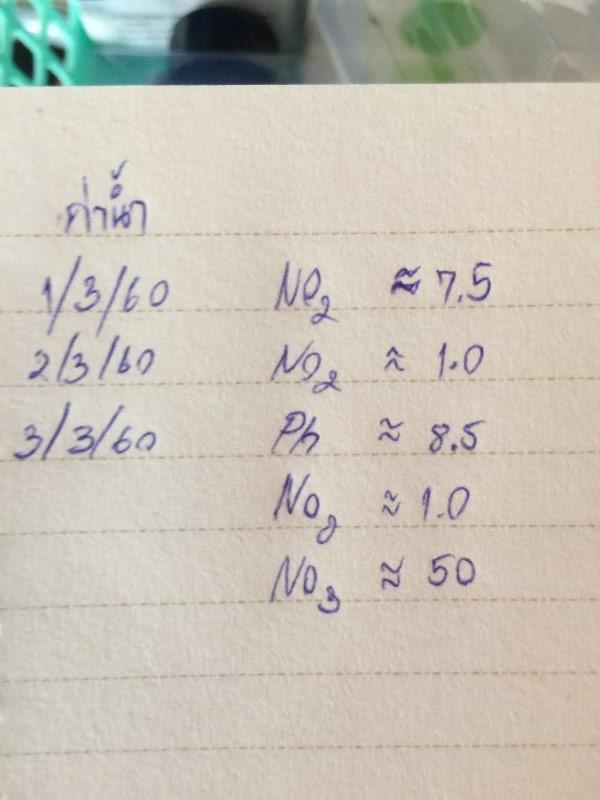 ค่าน้ำ
1/3/60 NO₂ ≈ 7.5
2/3/60 NO₂ ≈ 1.0
3/3/60 Ph ≈ 8.5
NO₂ ≈ 1.0
NO₃ ≈ 50